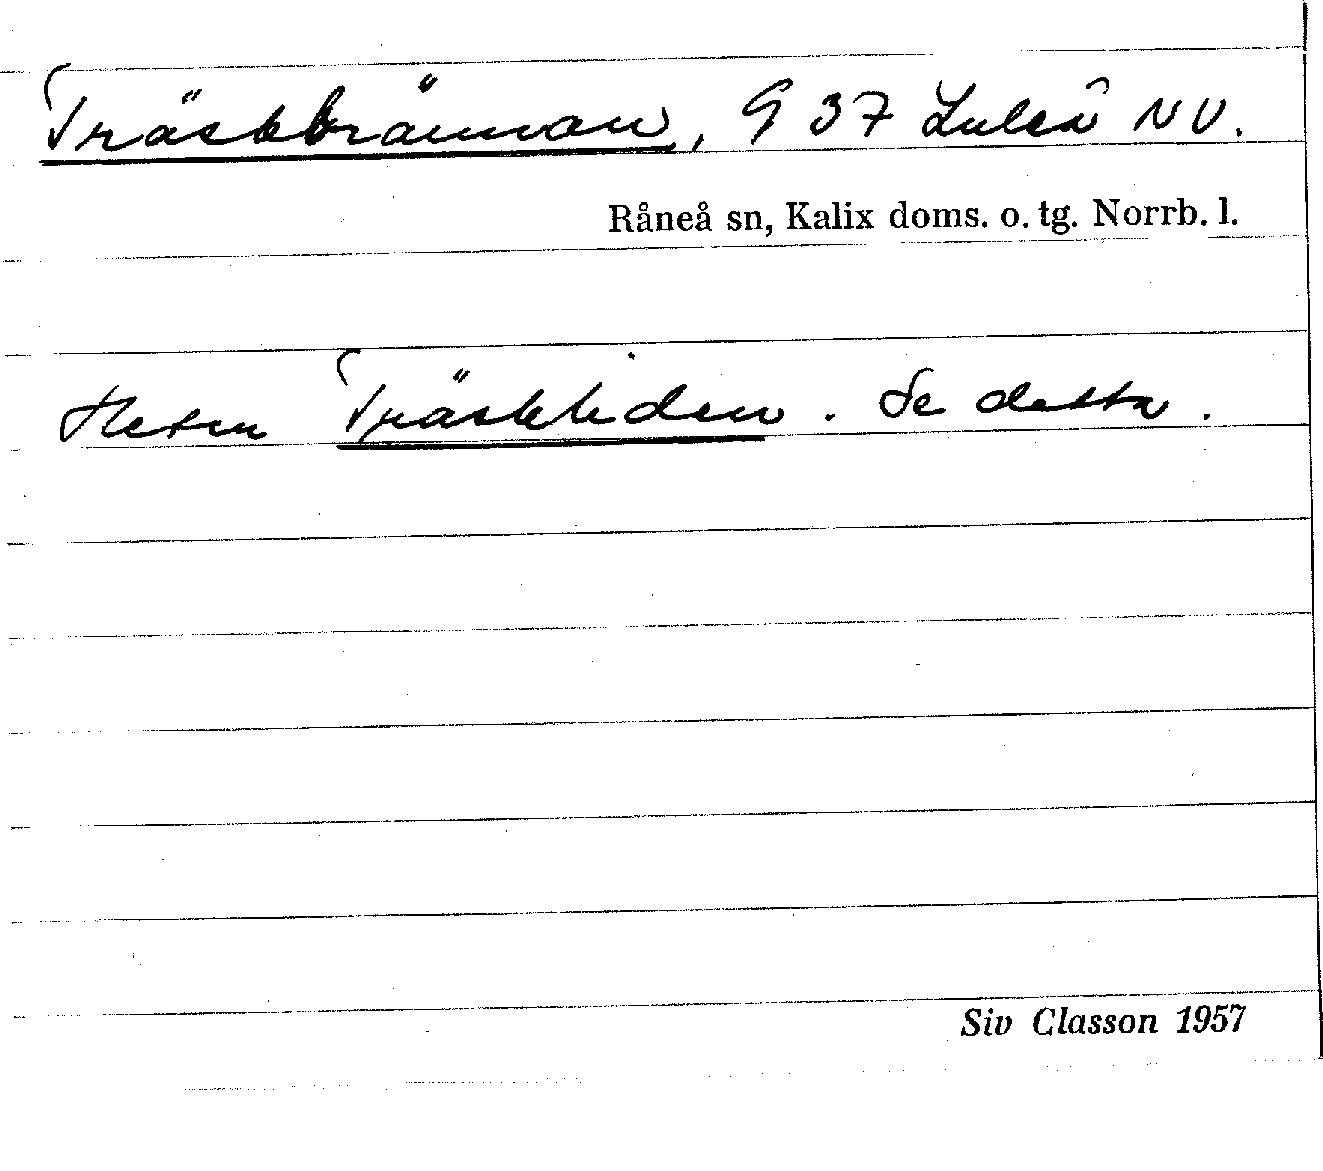 Träskbrännan, 9 37 Luleå NV.
Råneå sn, Kalix doms. o. tg. Norrb. l.
Heter Träskliden. Se detta.
Siv Classon 1957